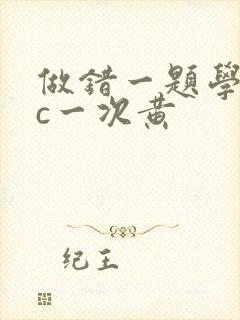 做錯一題學
c一次黃
纪王